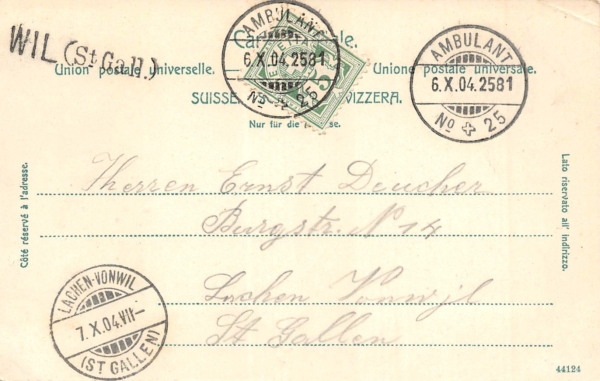 WIL (St Gall.)
AMBULANT
6.X.04.2581
No 25
Union postale universelle.
5
AMBULANT
6.X.04.2581
No 25
Unione postale universale.
SUISSE. VIZZERA.
Nur für die
Côté réservé à l'adresse.
Lato riservato all' indirizzo.
Herren Ernst Deucher
Burgstr. N 14
Lachen Vonwil
St Gallen
LACHEN-VONWIL
7.X.04.VII-
(ST GALLEN)
44124